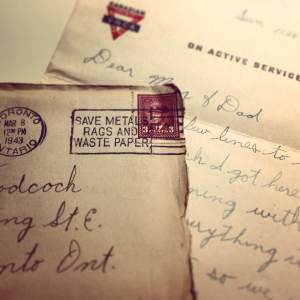 CANADIAN
Y.M.C.A.
ON ACTIVE SERVICE
Dear M & Dad
few lines to
I got here
with
everything
so we
TORONTO
MAR 8
12 PM
1943
ONTARIO
SAVE METALS
RAGS AND
WASTE PAPER
3 3
odcock
ng St. E.
nto Ont.